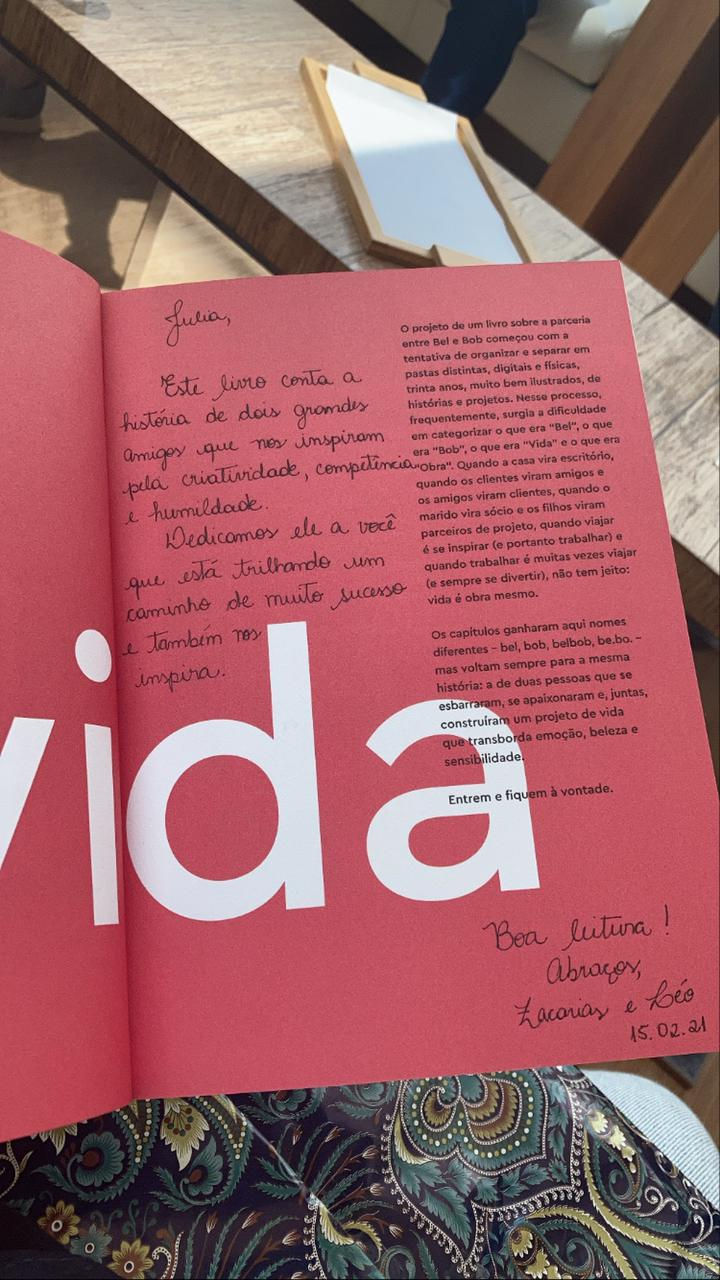 Julia,
Este livro conta a
história de dois grandes
amigos que nos inspiram
pela criatividade, competência
e humildade.
Dedicamos ele a você
que está trilhando um
caminho de muito sucesso
e também nos
inspira.
O projeto de um livro sobre a parceria
entre Bel e Bob começou com a
tentativa de organizar e separar em
pastas distintas, digitais e físicas,
trinta anos, muito bem ilustrados, de
histórias e projetos. Nesse processo,
frequentemente, surgia a dificuldade
em categorizar o que era "Bel", o que
era "Bob", o que era "Vida" e o que era
"Obra". Quando a casa vira escritório,
quando os clientes viram amigos e
os amigos viram clientes, quando o
marido vira sócio e os filhos viram
parceiros de projeto, quando viajar
é se inspirar (e portanto trabalhar) e
quando trabalhar é muitas vezes viajar
(e sempre se divertir), não tem jeito:
vida é obra mesmo.
Os capítulos ganharam aqui nomes
diferentes – bel, bob, belbob, be.bo. –
mas voltam sempre para a mesma
história: a de duas pessoas que se
esbarraram, se apaixonaram e, juntas,
construíram um projeto de vida
que transborda emoção, beleza e
sensibilidade.
Entrem e fiquem à vontade.
vida
Boa leitura!
Abraços,
Zacarias e Léo
15.02.21